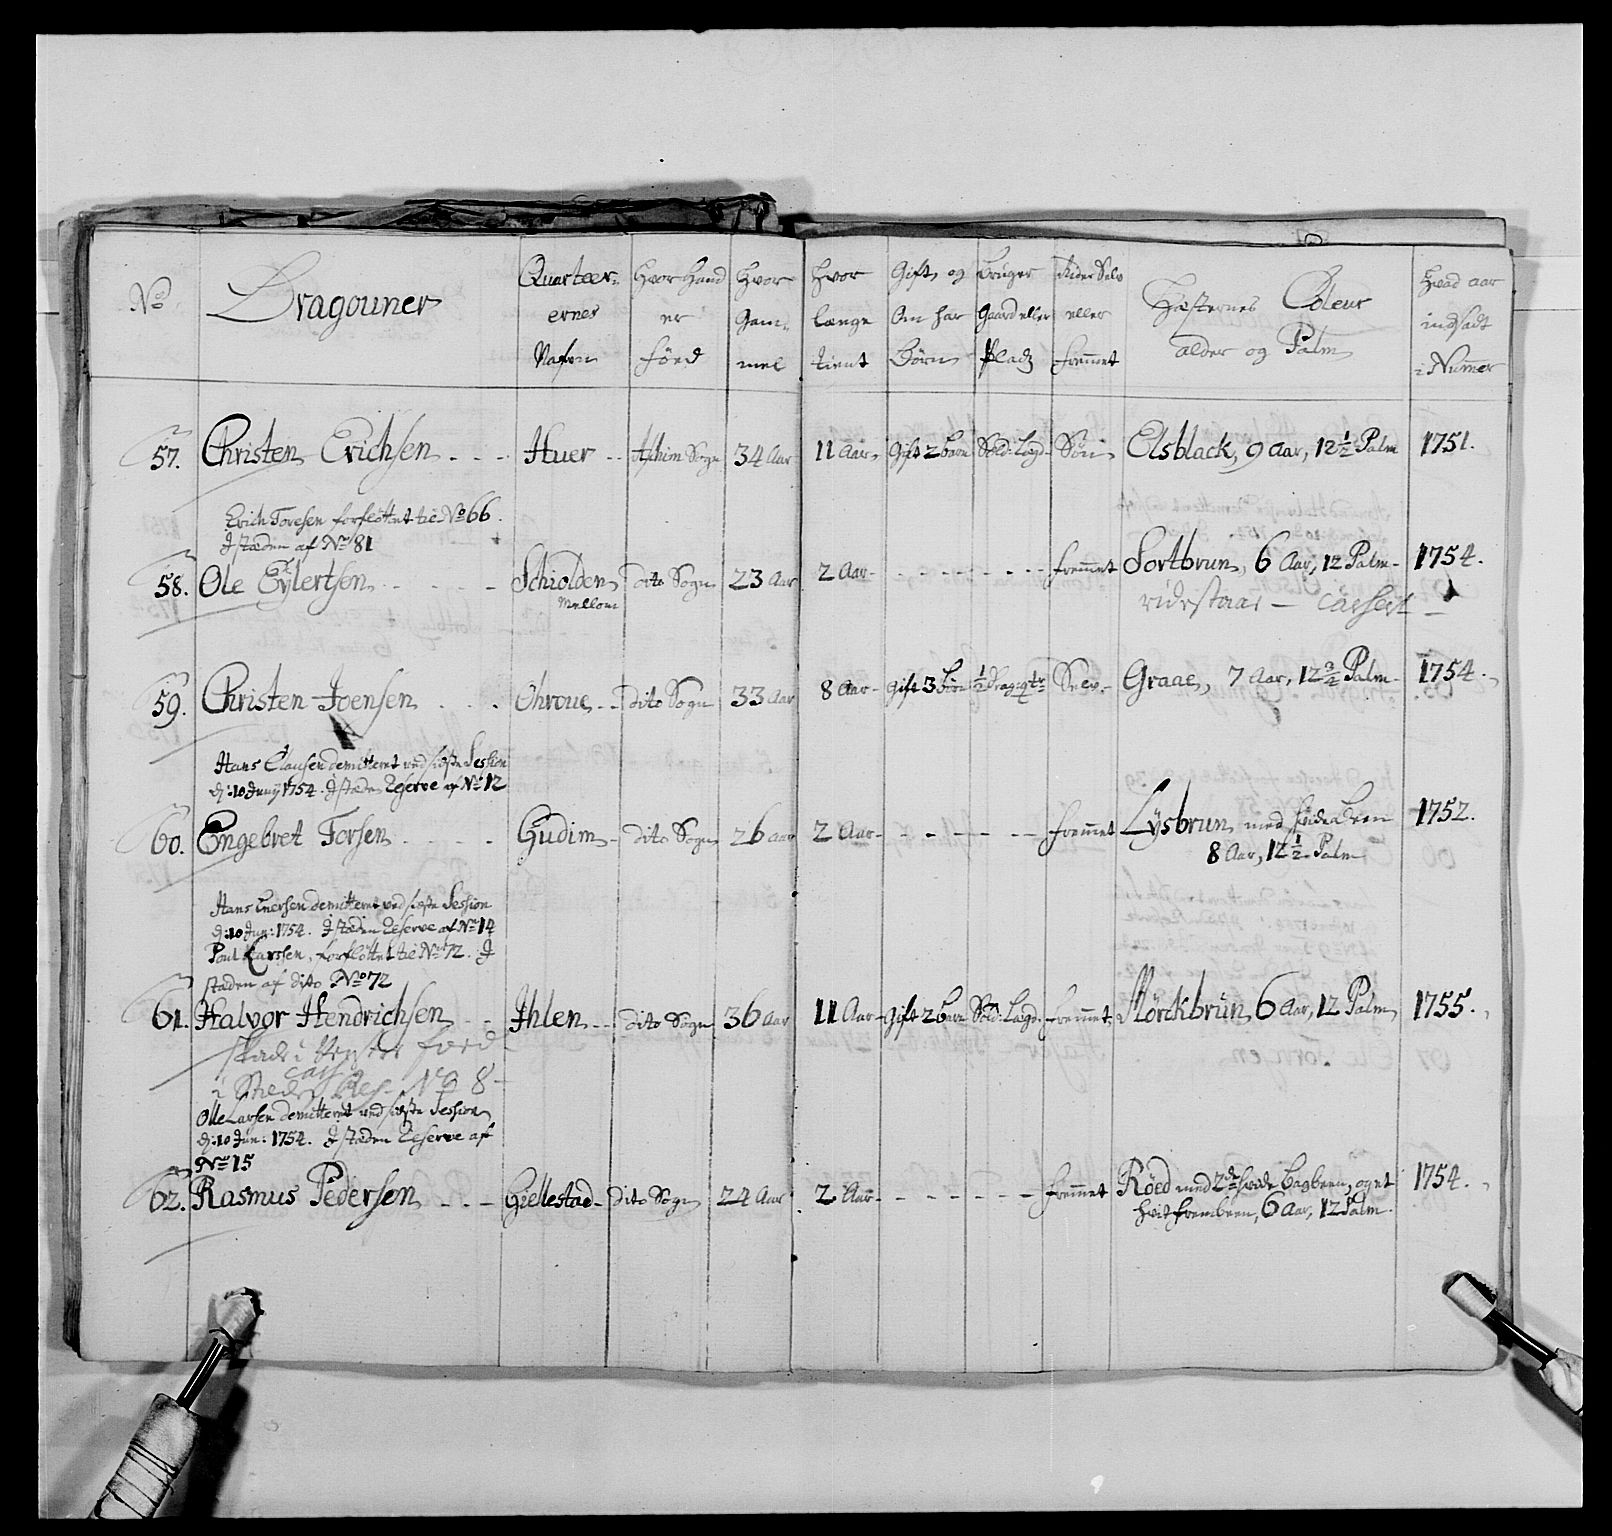 No
Dragouner
Quarteer-
ernes
Nafvn
Hvor Hand
er
föed
Hvor
Gam-
mel
hvor
længe
tient
Gift, og
Om har
Börn
Bruger
Gaard eller
Pladz
Rider Selv
eller
fremmet
Hæsternes Coleur
alder og Palm
Hvad aar
indsadt
i Numer
57. Christen Erichsen Huer Aschim Sogn 34 Aar 11 Aar Gift 2 børn Sold: Lægd Elsblack, 9 Aar, 12½ Palm 1751.
Erich Toresen forflöttet til No 66.
I stæden af No 81
58. Ole Eylertsen Schiolden dito Sogn 23 Aar 2 Aar fremmet Sortbrun, 6 Aar, 12 Palm 1754.
Mellom
59. Christen Joensen Ohroue dito Sogn 33 Aar 8 Aar Gift 3 Börn ½ Drag: qtr Selv Graae, 7 Aar, 12¾ Palm 1754.
Hans Clausen demitteret ved sidste Session
d: 10 Junÿ 1754. I stæden Reserve af No 12
60. Engebret Torsen Gudim dito Sogn 26 aar 2 Aar fremmet Lysbrun, med hvide Been 1752.
8 Aar, 12½ Palm
Hans demitteret ved sidste Session
d: 10 Jun: 1754. I stæden Reserve af No 14
Poul Larssen, forflöttet til No 72. I
stæden af dito No 72
61. Halvor Hendrichsen Ihlen dito Sogn 36 Aar 11 Aar Gift 2 børn Sold: Lægd fremmet Mörckbrun, 6 Aar, 12 Palm 1755.
skade i Venster foed
Cass:
i Steden Res. No 8
Olle Larsen demitteret ved sidste Session
d: 10 Jun: 1754. I stæden Reserve af
No 15
62. Rasmus Pedersen Giellestad dito Sogn 24 Aar 2 Aar fremmet Röed med 2de hvide Bagbeen, og et 1754.
hvit frembeen, 6 Aar, 12 Palm.